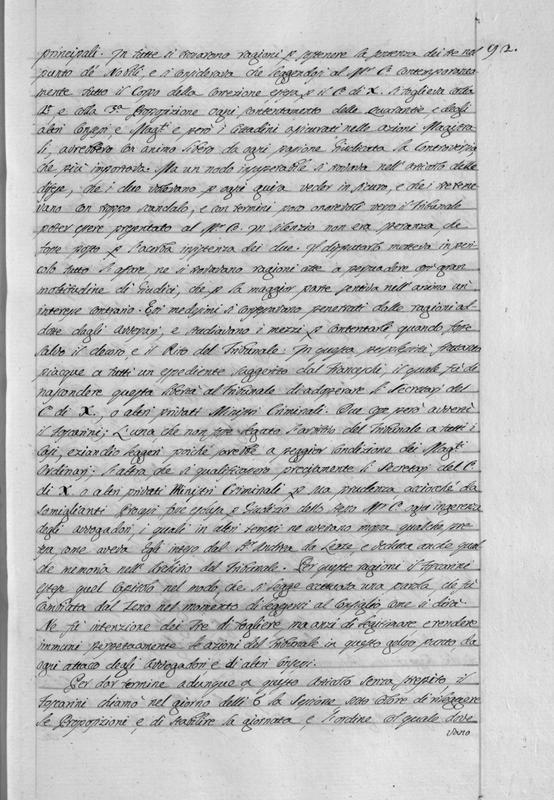 92.
principali. In tutte si trovarono ragioni p sostenere la potenza dei tre nel
punto de Nobili, e si considerava che leggendosi al Mr C. contemporanea
mente tutto il Corpo della Correzione essa p il C. di X. si toglieva colla
e colla 3a Proposizione ogni contentamento delle Quarantie, e degli
altri Consessi e Magti e però i Cittadini assicurati nelle azioni Magistra
li, avrebbero con animo libero da ogni passione giudicata la Controversia
che più importava. Ma un nodo insuperabile si trovava nell' articolo delle
che i due volevano p ogni guisa veder in sicuro, e che i tre
vano con troppo scandalo, e con termini poco onorevoli verso il Tribunale
poter essere presentato al Mr C. In silenzio non era speranza che
fosse posto p l'acerba insistenza dei due. Il disputarlo metteva in peri
colo tutto l'affare ne si trovavano ragioni atte a persuadere con gran
moltitudine di Giudici, che p la maggior parte sentiva nell' animo un
interesse contrario. Essi medesimi si penetrati dalle ragioni ad
dotte dagli Avversarj, e studiavano i mezzi p contentarli, quando fosse
salvo il decoro, e il Rito del Tribunale. In questa perplessità frattanto
piacque a tutti un espediente suggerito dal Franceschi, il quale fù di
nascondere questa libertà al Tribunale di adoperare li Secretarj del
C. di X. o altri privati Ministri Criminali. Due cose però avvertì
il Foscarini; L'una che non fosse legato l'arbitrio del Tribunale a tutti i
casi, eziandio leggeri poichè sarebbe a peggior condizione dei Magti
Ordinarj; l'altra che si qualificassero precisamente li Secretarj del C.
di X o altri privati Ministri Criminali p sua prudenza, acciocchè da
somiglianti Processi fosse esclusa p Giudizio dello stesso Mr C. ogni ingerenza
degli avvogadori, i quali in altri tempi ne avevano mossa qualche pre
tesa, come aveva Egli inteso dal Sr Andrea da Leze, e vedute anche qual
che memoria nell' Archivio del Tribunale. Per queste ragioni il Foscarini
estese quel Capitolo nel modo, che si legge eccettuata una parola che fù
cambiata dal Zeno nel momento di leggersi al Consiglio come si dirà.
Ne fù intenzione dei Tre di togliere, ma anzi di legitimare e rendere
immuni perpetuamente le azioni del Tribunale in questo geloso punto, da
ogni attacco degli Avvogadori e di altri Consessi.
Per dar termine adunque a questo Articolo senza strepito il
Foscarini chiamò nel giorno delli 6 la Sessione sotto colore di rileggere
le Proposizioni e, di stabilire la giornata e l'ordine col quale dove
vano